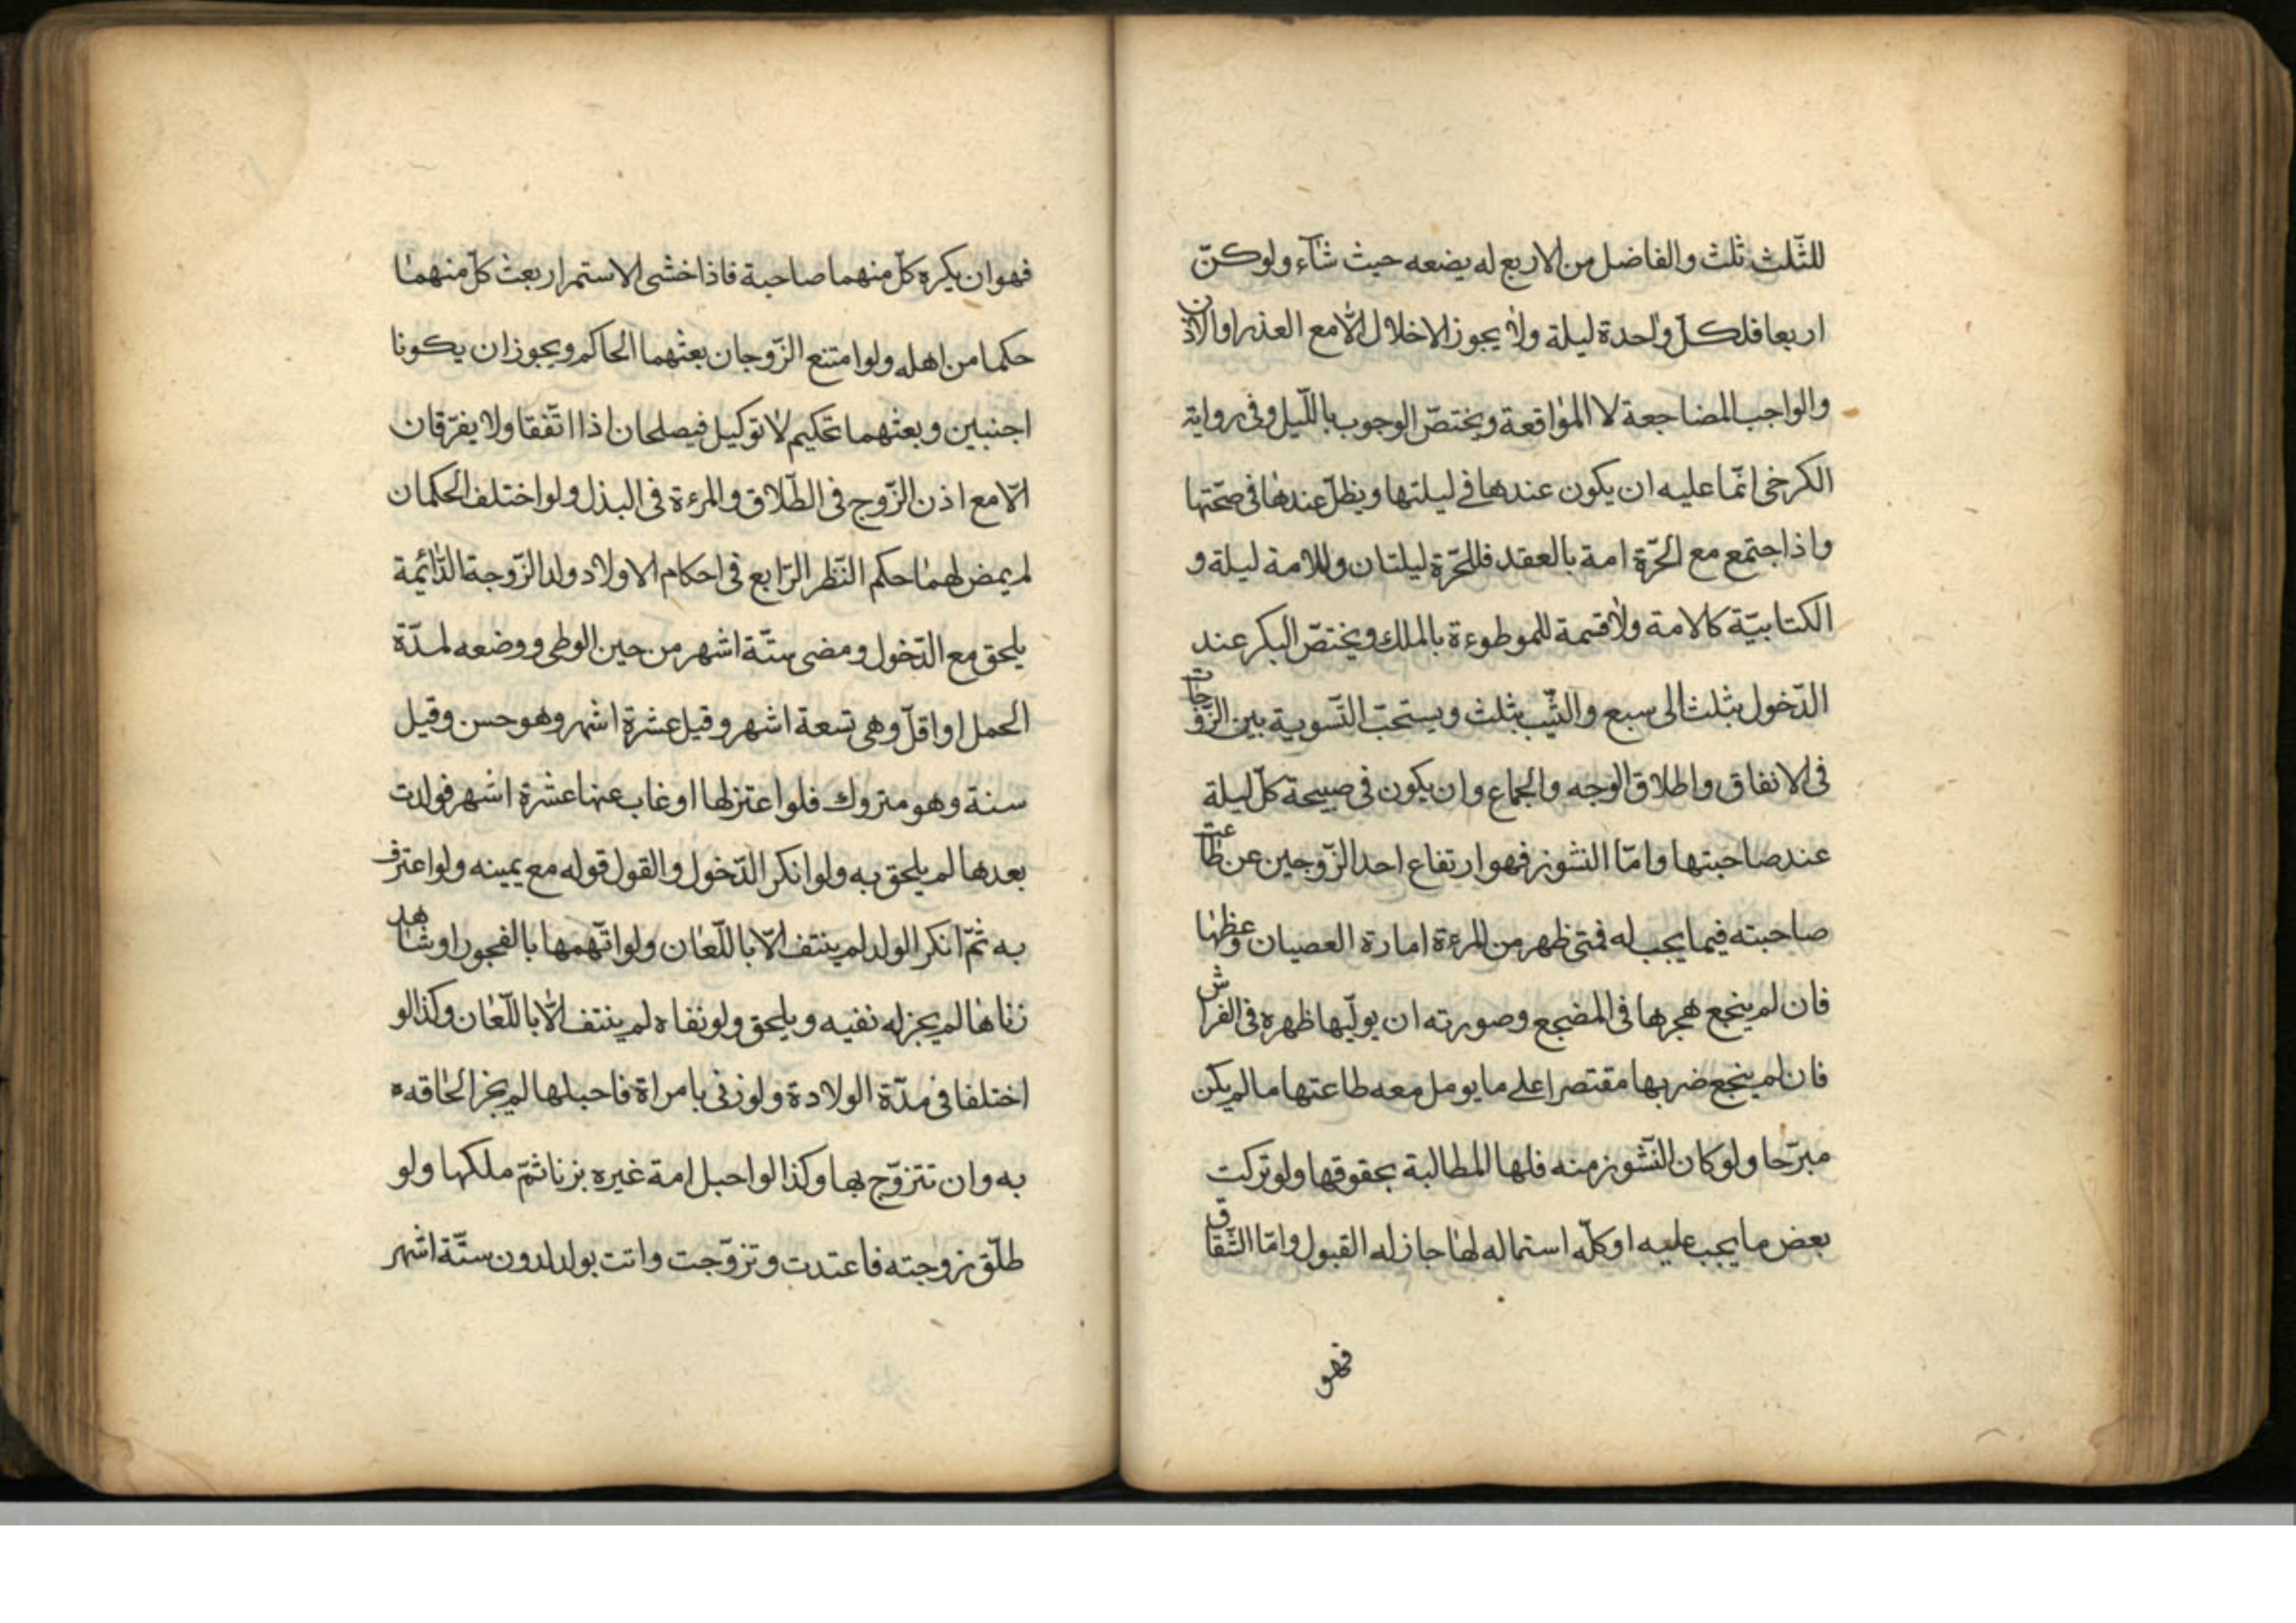 للثّلث ثلث والفاضل من الاربع له يضعه حيث شآء ولو كنّ
اربعا فلكلّ واحدة ليلة ولا يجوز الاخلال الّا مع العذر او الاذن
والواجب المضاجعة لا المواقعة ويختصّ الوجوب باللّيل وفى رواية
الكرخى انّما عليه ان يكون عندها فى ليلتها ويظلّ عندها فى صحّتها
واذا اجتمع مع الحرّة امة بالعقد فللحّرة ليلتان وللامة ليلة و
الكتابيّة كالامة ولا قسمة للموطوءة بالملك ويختصّ البكر عند
الدّخول بثلث الى سبع والثّيّب بثلث ويستحبّ التّسوية بين الزّوجات
فى الانفاق واطلاق الوجه والجماع وان يكون فى صبيحة كلّ ليلة
عند صاحبتها وامّا النشوز فهو ارتفاع احد الزّوجين عن طاعت
صاحبته فيما يجب له فمتى ظهر من المرءة امارة العصيان وعظها
فان لم ينجع هجرها فى المضجع وصورته ان يولّيها ظهره فى الفراش
فان لم ينجع ضربها مقتصرا على ما يومل معه طاعتها ما لم يكن
مبرّحا ولو كان النّشوز منه فلها المطالبة بحقوقها ولو تركت
بعض ما يجب عليه او كلّه استماله لها جاز له القبول وامّا الشّقاق
فهو
فهو ان يكره كلّ منهما صاحبة فاذا خشى الاستمرار بعث كلّ منهما
حكما من اهله ولو امتنع الزّوجان بعثهما الحاكم ويجوز ان يكونا
اجنبين وبعثهما تحكيم لا توكيل فيصلحان اذا اتّفقا ولا يفرّقان
الّا مع اذن الزّوج فى الطّلاق والمرءة فى البذل ولو اختلف الحكمان
لم يمض لهما حكم النّظر الرّابع فى احكام الاولاد ولد الزّوجة الدّائمة
يلحق مع الدّخول ومضى ستّة اشهر من حين الوطى ووضعه لمدّة
الحمل او اقلّ وهى تسعة اشهر وقيل عشرة اشهر وهو حسن وقيل
سنة وهو متروك فلو اعتزلها او غاب عنها عشرة اشهر فولدت
بعدها لم يلحق به ولو انكر الدّخول والقول قوله مع يمينه ولو اعترف
به ثمّ انكر الولد لم ينتف الّا باللّعان ولو اتّهمها بالفجور او شاهد
زناها لم يجز له نفيه ويلحق ولو نفاه لم ينتف الّا باللّعان وكذا لو
اختلفا فى مدّة الولادة ولو زنى بامراة فاحبلها لم يجز الحاقه
به وان تتزوّج بها وكذا لو احبل امة غيره بزنا ثمّ ملكها ولو
طلّق زوجته فاعتدت وتزوّجت واتت بولد لدون ستّة اشهر